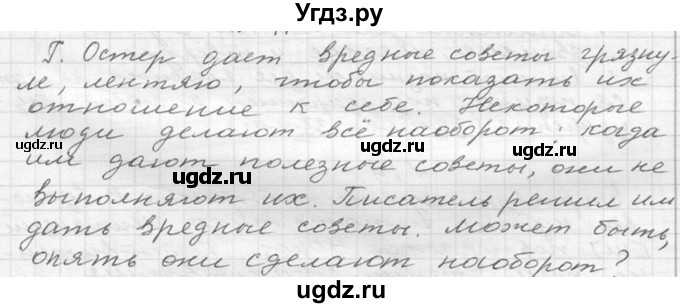 Угдз.ру
Г. Остер дает вредные советы грязну-
ле, лентяю, чтобы показать их
отношение к себе. Некоторые
люди делают всё наоборот: когда
им дают полезные советы, они не
выполняют их. Писатель решил им
дать вредные советы. Может быть,
опять они сделают наоборот?
ugdz.ru
ugdz.ru
ugdz.ru
ugdz.ru
ugdz.ru
ugdz.ru